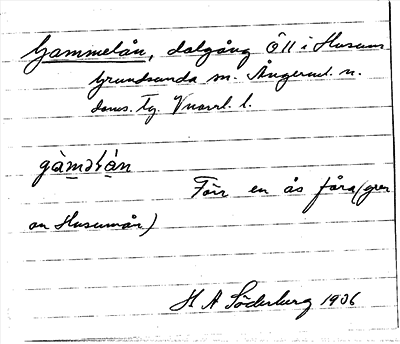 Gammelån, dalgång Ö11 i Husum
Grundsunda sn. Ångerml. n.
doms. tg. Vnorrl. l.
gàməlàn
Förr en ås fåra (gren
av Husumån)
H A Söderberg 1906